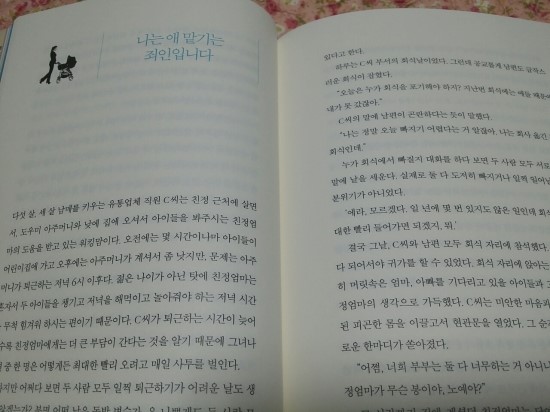 나는 애 맡기는
죄인입니다
다섯 살, 세 살 남매를 키우는 유통업체 직원 C씨는 친정 근처에 살면
서, 도우미 아주머니와 낮에 집에 오셔서 아이들을 봐주시는 친정엄
마의 도움을 받고 있는 워킹맘이다. 오전에는 몇 시간이나마 아이들이
어린이집에 가고 오후에는 아주머니가 계셔서 좀 낫지만, 문제는 아주
머니가 퇴근하는 저녁 6시 이후다. 젊은 나이가 아닌 탓에 친정엄마는
혼자서 두 아이들을 챙기고 저녁을 해먹이고 놀아줘야 하는 저녁 시간
무척 힘겨워 하시는 편이기 때문이다. C씨가 퇴근하는 시간이 늦어
수록 친정엄마에게는 더 큰 부담이 간다는 것을 알기 때문에 그녀나
중 한 명은 어떻게든 최대한 빨리 오려고 매일 사투를 벌인다.
하지만 어쩌다 보면 두 사람 모두 일찍 퇴근하기가 어려운 날도 생
있다고 한다.
하루는 C씨 부서의 회식날이었다. 그런데 공교롭게 남편도 갑작스
러운 회식이 잡혔다.
“오늘은 누가 회식을 포기해야 하지? 지난번 회식에는 애들 때문에
내가 못 갔잖아.”
C씨의 말에 남편이 곤란하다는 듯이 말했다.
“나는 정말 오늘 빠지기 어렵다는 거 알잖아. 나는 회사 옮긴
회식인데.”
누가 회식에서 빠질지 대화를 하다 보면 두 사람 모두 서로
말에 날을 세운다. 실제로 둘 다 도저히 빠지거나 일찍 일어날
분위기가 아니었다.
“에라, 모르겠다. 일 년에 몇 번 있지도 않은 일인데 회식
대한 빨리 들어가면 되겠지, 뭐.”
결국 그날, C씨와 남편 모두 회식 자리에 참석했다.
다 되어서야 귀가를 할 수 있었다. 회식 자리에 앉아
히 머릿속은 엄마, 아빠를 기다리고 있을 아이들과
정엄마의 생각으로 가득했다. C씨는 미안한 마음과
된 피곤한 몸을 이끌고서 현관문을 열었다. 그 순간
로운 한마디가 쏟아졌다.
“어쩜, 너희 부부는 둘 다 너무하는 거 아니니
정엄마가 무슨 봉이야, 노예야?”